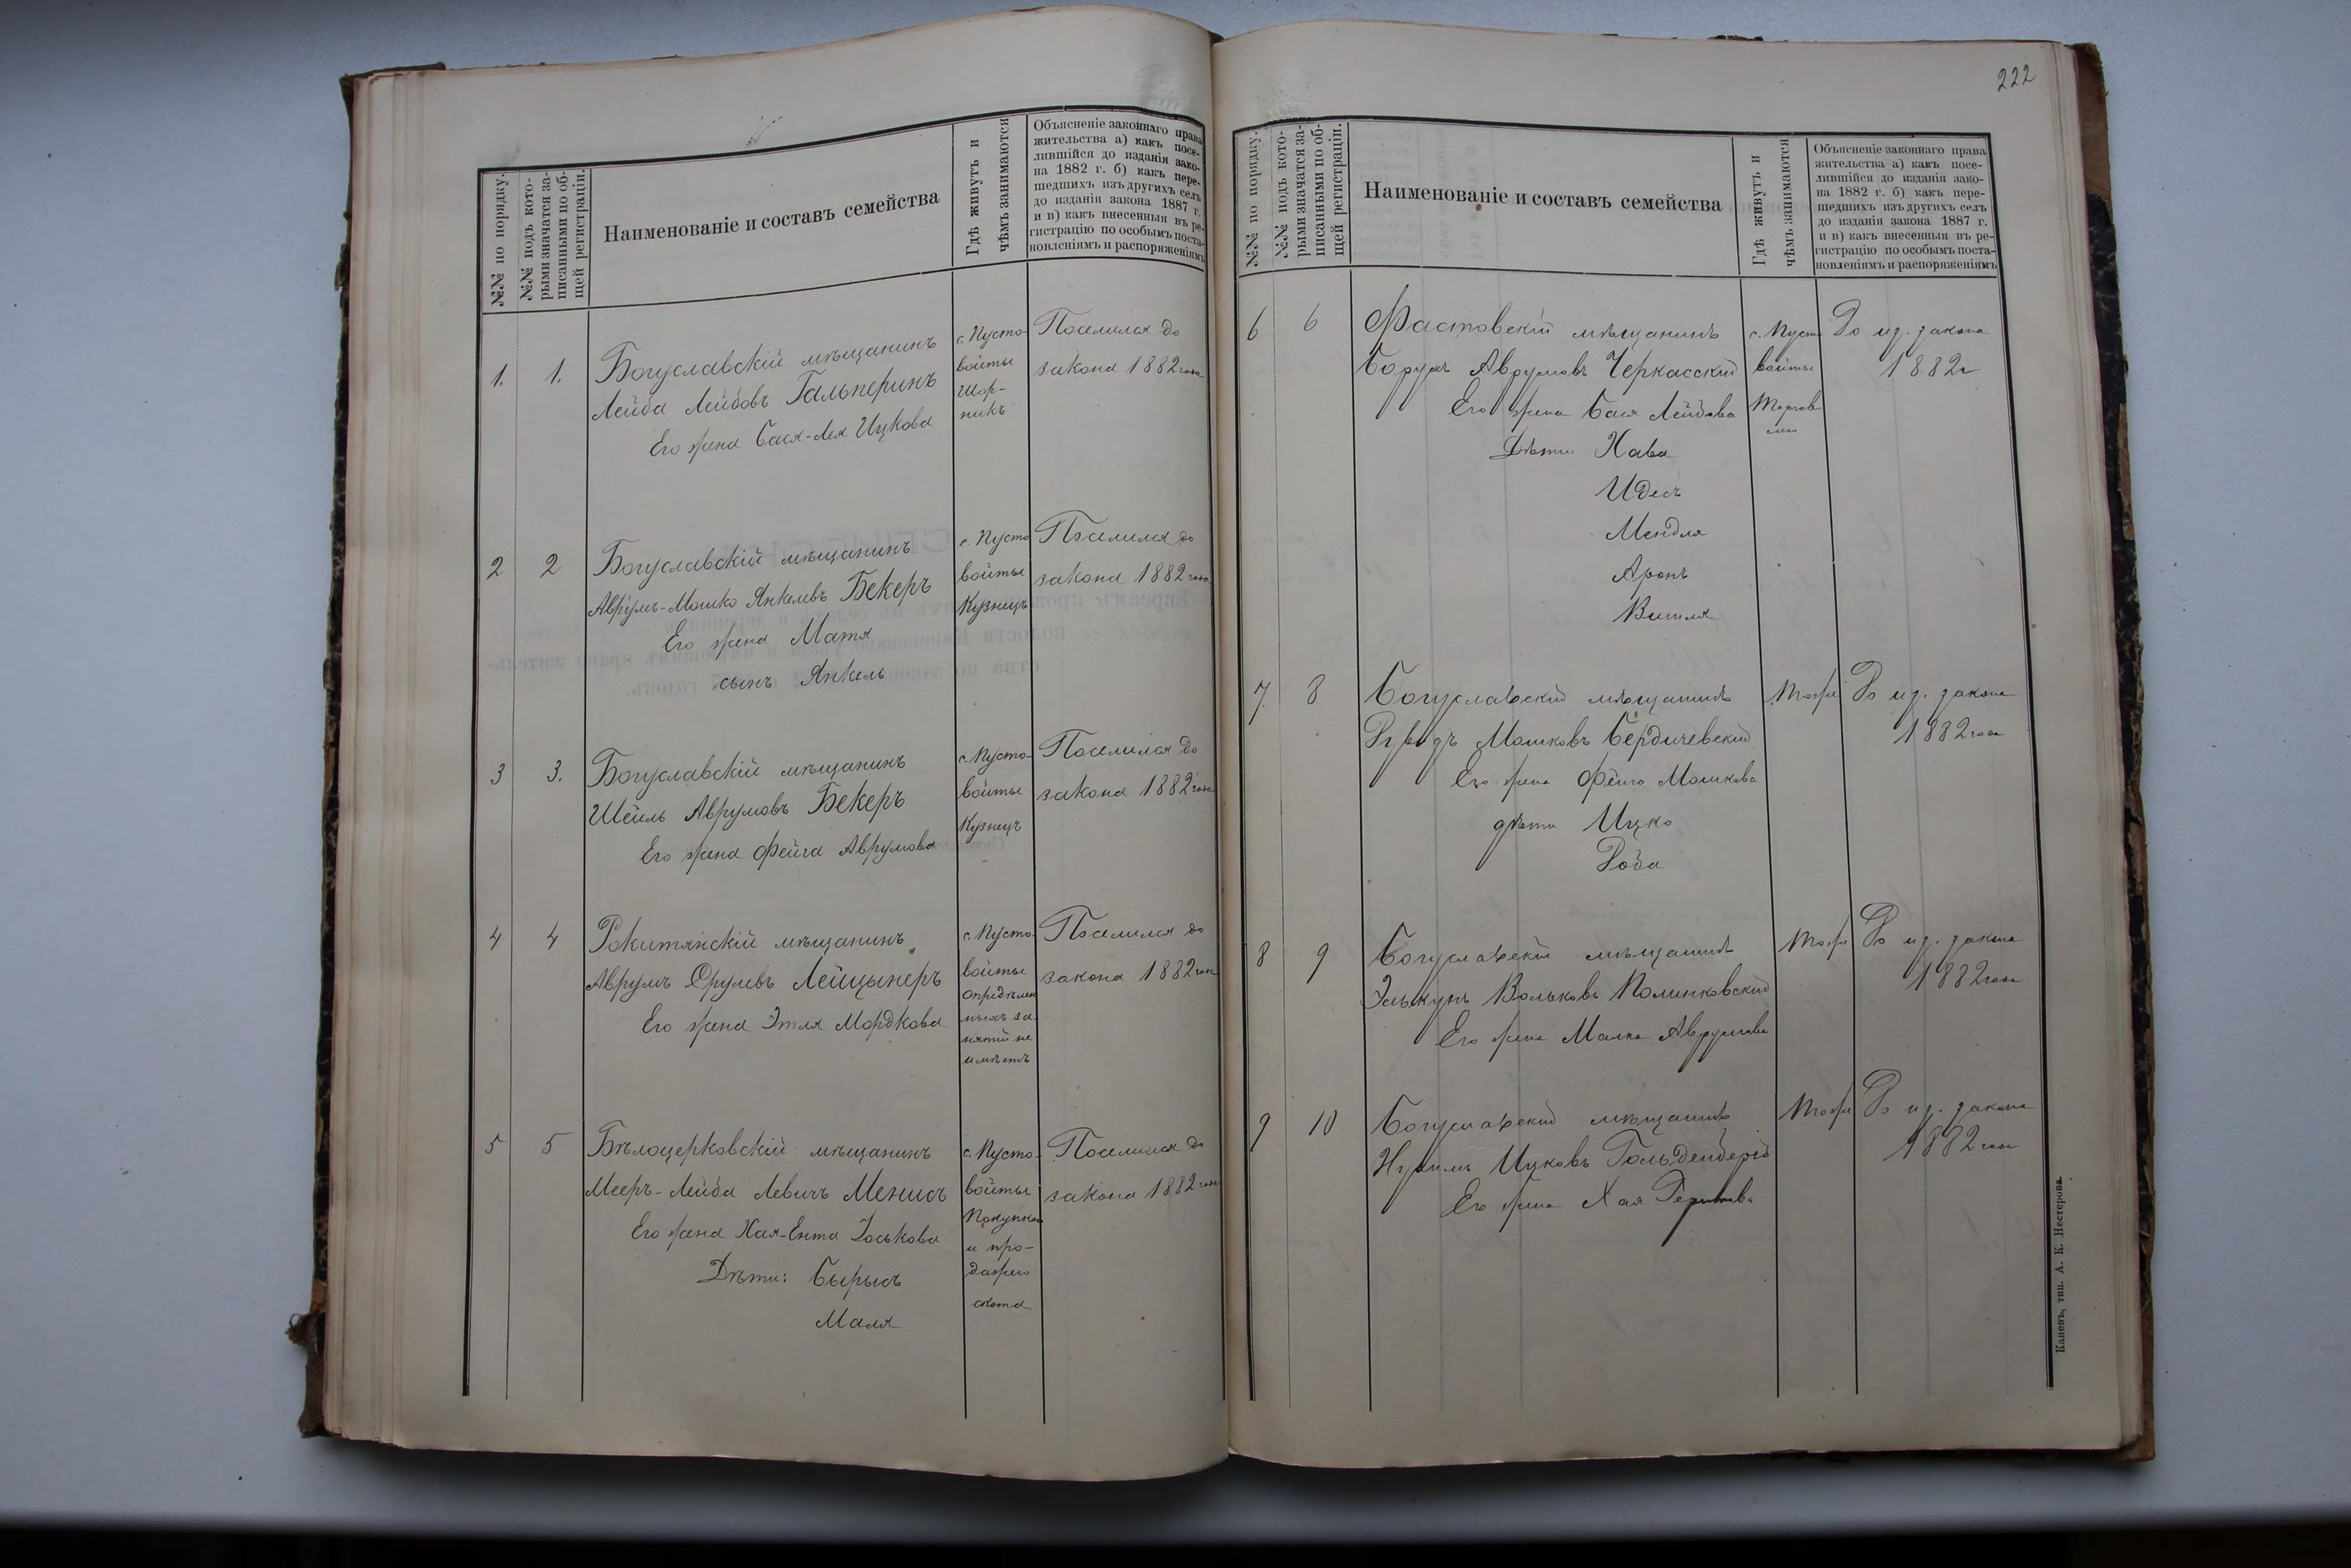 №№ по порядку.
№№ подъ кото-
рыми значатся за-
писанными по об-
щей регистраціи.
Наименованіе и составъ семейства
Гдѣ живутъ и
чѣмъ занимаются
Объясненіе законнаго права
жительства а) какъ посе-
лившійся до изданія зако-
на 1882 г. б) какъ пере-
шедшихъ изъ другихъ селъ
до изданія закона 1887 г.
и в) какъ внесенныя въ ре-
гистрацію по особымъ поста-
новленіямъ и распоряженіямъ
1. 1. Богуславскій мѣщанинъ
Лейба Лейбовъ Гальперинъ
Его жена Бася-Лея Ицкова
с. Пусто-
войты
Шор-
никъ
Поселился до
закона 1882 года
2 2 Богуславскій мѣщанинъ
Аврумъ-Мошко Янкелевъ Бекеръ
Его жена Матя
сынъ Янкель
с. Пусто
войты
Кузнецъ
Поселился до
закона 1882 года
3 3. Богуславскій мѣщанинъ
Шейль Аврумовъ Бекеръ
Его жена Фейга Аврумова
с. Пусто-
войты
Кузнецъ
Поселился до
закона 1882 года
4 4 Рокитянскій мѣщанинъ
Аврумъ Срулевъ Лейцынеръ
Его жена Этля Мордкова
с. Пусто-
войты
опредѣлен
ныхъ за-
нятій не
имѣетъ
Поселился до
закона 1882 года
5 5 Бѣлоцерковскій мѣщанинъ
Мееръ-Лейба Левичъ Менисъ
Его жена Хая-Ента Іоськова
Дѣти: Сырысь
Маля
с. Пусто-
войты
Покупкою
и про-
дажею
скота
Поселился до
закона 1882 года
222
№№ по порядку.
№№ подъ кото-
рыми значатся за-
писанными по об-
щей регистраціи.
Наименованіе и составъ семейства
Гдѣ живутъ и
чѣмъ занимаются
Объясненіе законнаго права
жительства а) какъ посе-
лившійся до изданія зако-
на 1882 г. б) какъ пере-
шедшихъ изъ другихъ селъ
до изданія закона 1887 г.
и в) какъ внесенныя въ ре-
гистрацію по особымъ поста-
новленіямъ и распоряженіямъ
6 6 Фастовскій мѣщанинъ
Борухъ Аврумовъ Черкасскій
Его жена Бася Лейбова
Дѣти Хава
Идесъ
Мендля
Аронъ
Витля
с. Пусто
войты
Торгов
До из. закона
1882 г
7. 8 Богуславскій мѣщанинъ
Мошковъ Бердичевскій
Его жена Фейга Мошкова
дѣти Ицко
Роза
тоже
До из. закона
1882 года
8 9 Богуславскій мѣщанинъ
Элькунъ Вольковъ Полинковскій
Его жена Малка Аврумова
тоже
До из. закона
1882 года
9 10 Богуславскій мѣщанинъ
Нухимъ Ицковъ Гольденбергъ
Его жена Хая
тоже
До из. закона
1882 года
Каневъ, тип. А. К. Нестерова.